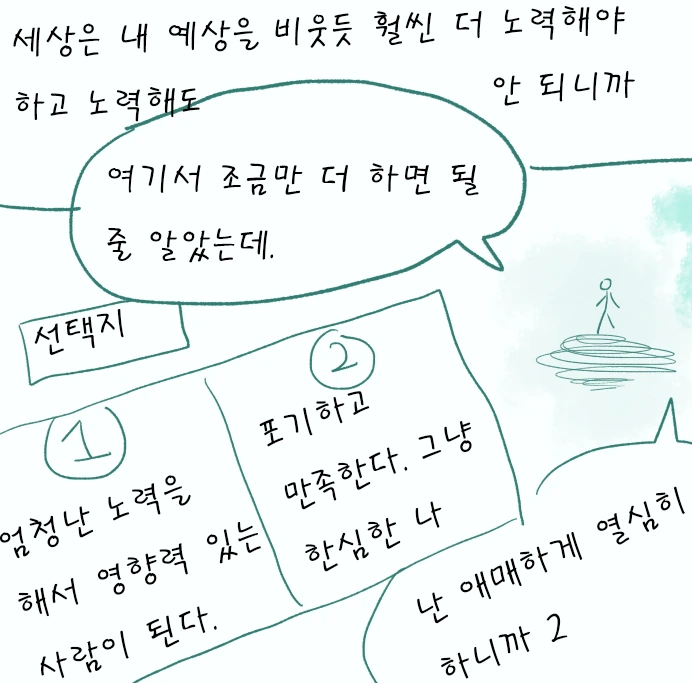 세상은 내 예상을 비웃듯 훨씬 더 노력해야
하고 노력해도 안 되니까
여기서 조금만 더 하면 될
줄 알았는데.
선택지
1
엄청난 노력을
해서 영향력 있는
사람이 된다.
2
포기하고
만족한다. 그냥
한심한 나
난 애매하게 열심히
하니까 2